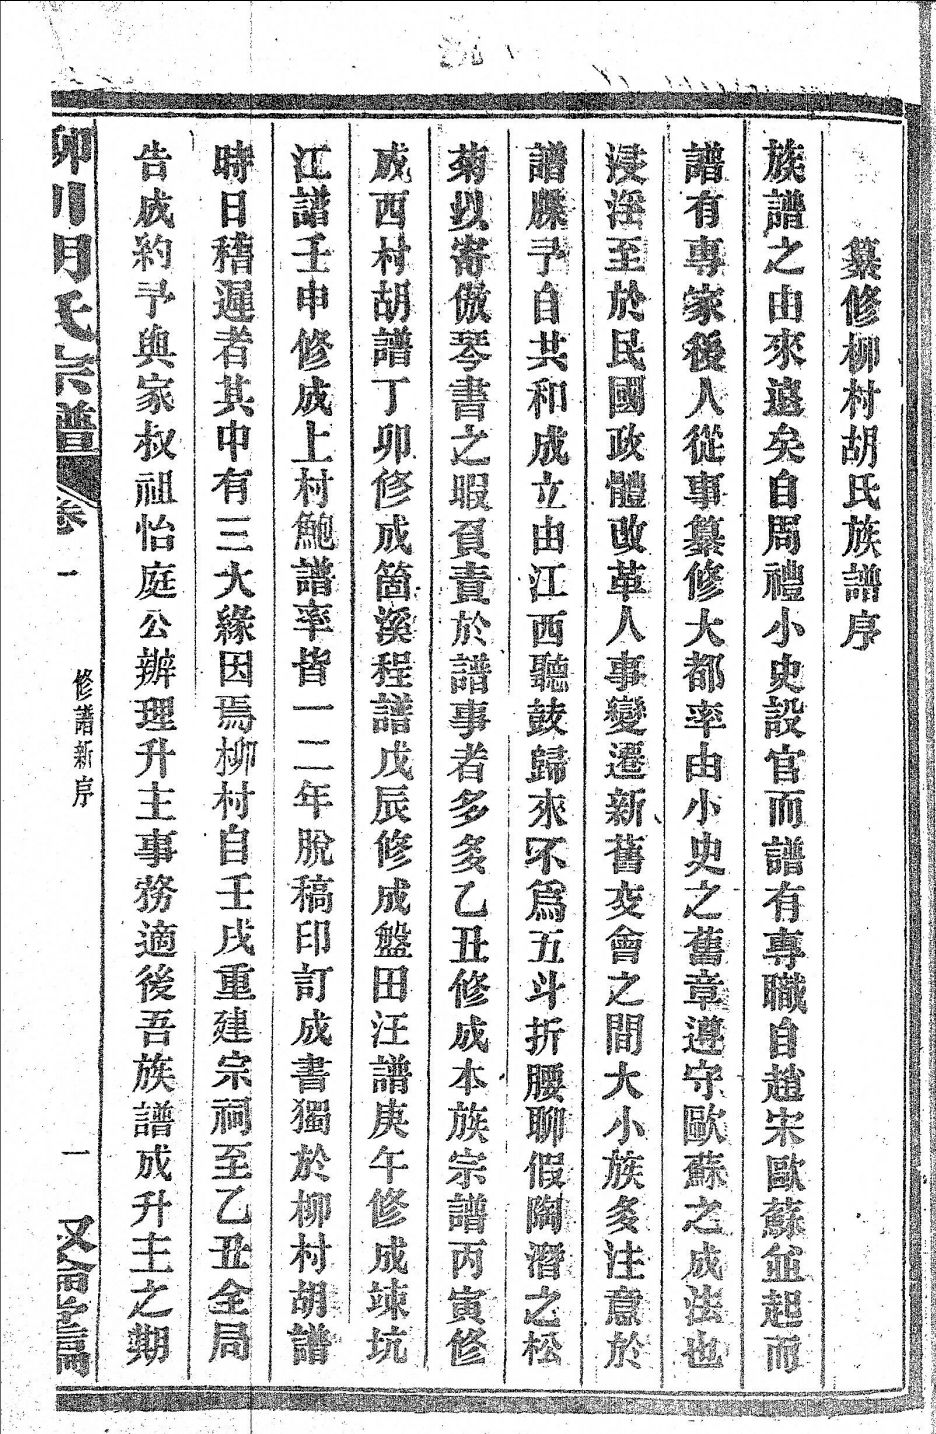 纂修柳村胡氏族譜序
族譜之由來遠矣自周禮小史設官而譜有專職自趙宋歐蘇並起而
譜有專家後人從事纂修大都率由小史之舊章遵守歐蘇之成法也
浸淫至於民國政體改革人事變遷新舊交會之間大小族多注意於
譜牒予自共和成立由江西聽鼓歸來不爲五斗折腰聊假陶潛之松
菊以寄傲琴書之暇負責於譜事者多多乙丑修成本族宗譜丙寅修
成西村胡譜丁卯修成箇溪程譜戊辰修成盤田汪譜庚午修成竦坑
江譜壬申修成上村鮑譜率皆一二年脫稿印訂成書獨於柳村胡譜
時日稽遲者其中有三大緣因焉柳村自壬戌重建宗祠至乙丑全局
告成約予與家叔祖怡庭公辦理升主事務適後吾族譜成升主之期
柳川胡氏宗譜 卷一 修譜新序 一